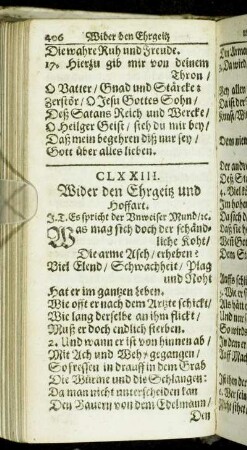 406 Wider den Ehrgeitz
Die wahre Ruh und Freude.
17. Hierzu gib mir von deinem
Thron /
O Vatter / Gnad und Stärcke:
Zerstör / O Jesu Gottes Sohn /
Deß Satans Reich und Wercke /
O Heiliger Geist / steh du mir bey /
Daß mein begehren diß nur sey /
Gott über alles lieben.
CLXXIII.
Wider den Ehrgeitz und
Hoffart.
J. T. Es spricht der Unweiser Mund / ꝛc.
Was mag sich doch der schänd-
liche Koht /
Die arme Asch / erheben?
Viel Elend / Schwachheit / Plag
und Noht
Hat er im gantzen Leben.
Wie offt er nach dem Artzte schickt /
Wie lang derselbe an ihm flickt /
Muß er doch endlich sterben.
2. Und wann er ist von hinnen ab /
Mit Ach und Weh / gegangen /
So fressen in drauff in dem Grab
Die Würme und die Schlangen:
Da man nicht unterscheiden kan
Den Bauern von dem Edelmann /
Den